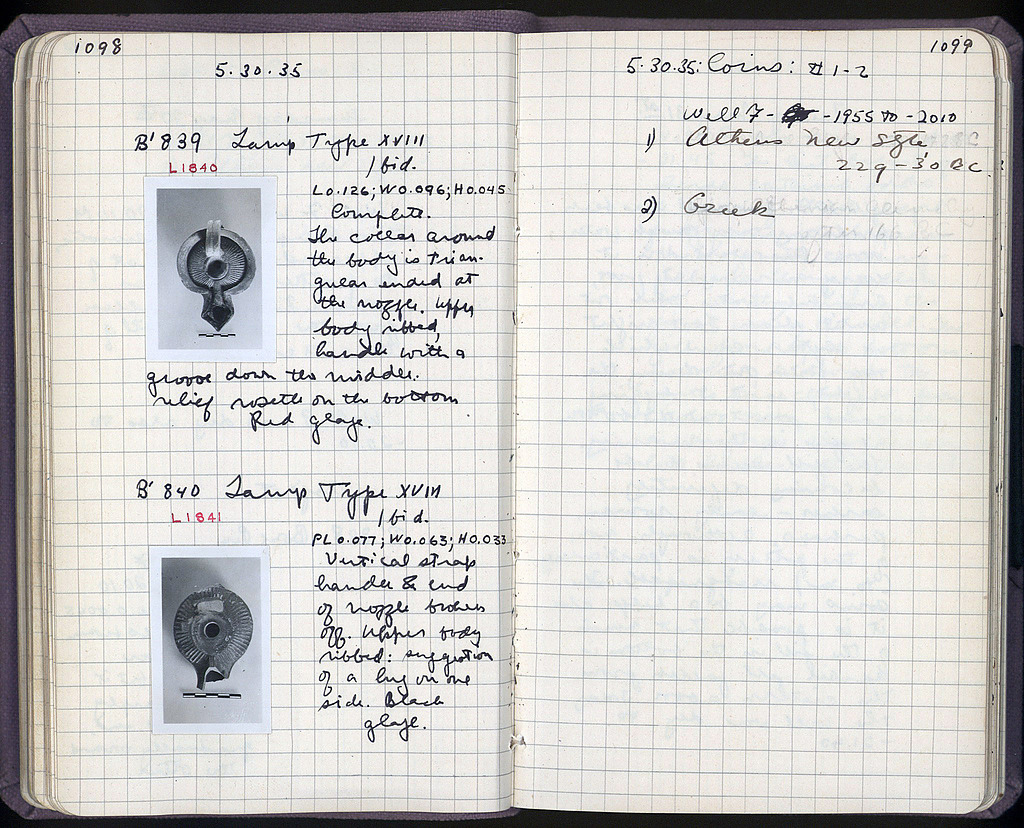 1098
5.30.35
B' 839 Lamp Type XVIII
L1840
Ibid.
L 0.126; W 0.096; H 0.045
Complete.
The collar around
the body is trian-
gular ended at
the nozzle. Upper
body ribbed,
handle with a
groove down the middle.
relief rosette on the bottom
Red glaze.
B' 840 Lamp Type XVIII
L1841
Ibid.
PL 0.077; W 0.063; H 0.033
Vertical strap
handle & end
of nozzle broken
off. Upper body
ribbed: suggestion
of a lug on one
side. Black
glaze.
1099
5.30.35: Coins: #1-2
Well 7 - -19.55 to -20.10
1) Athens New Style
229-30 BC.
2) Greek